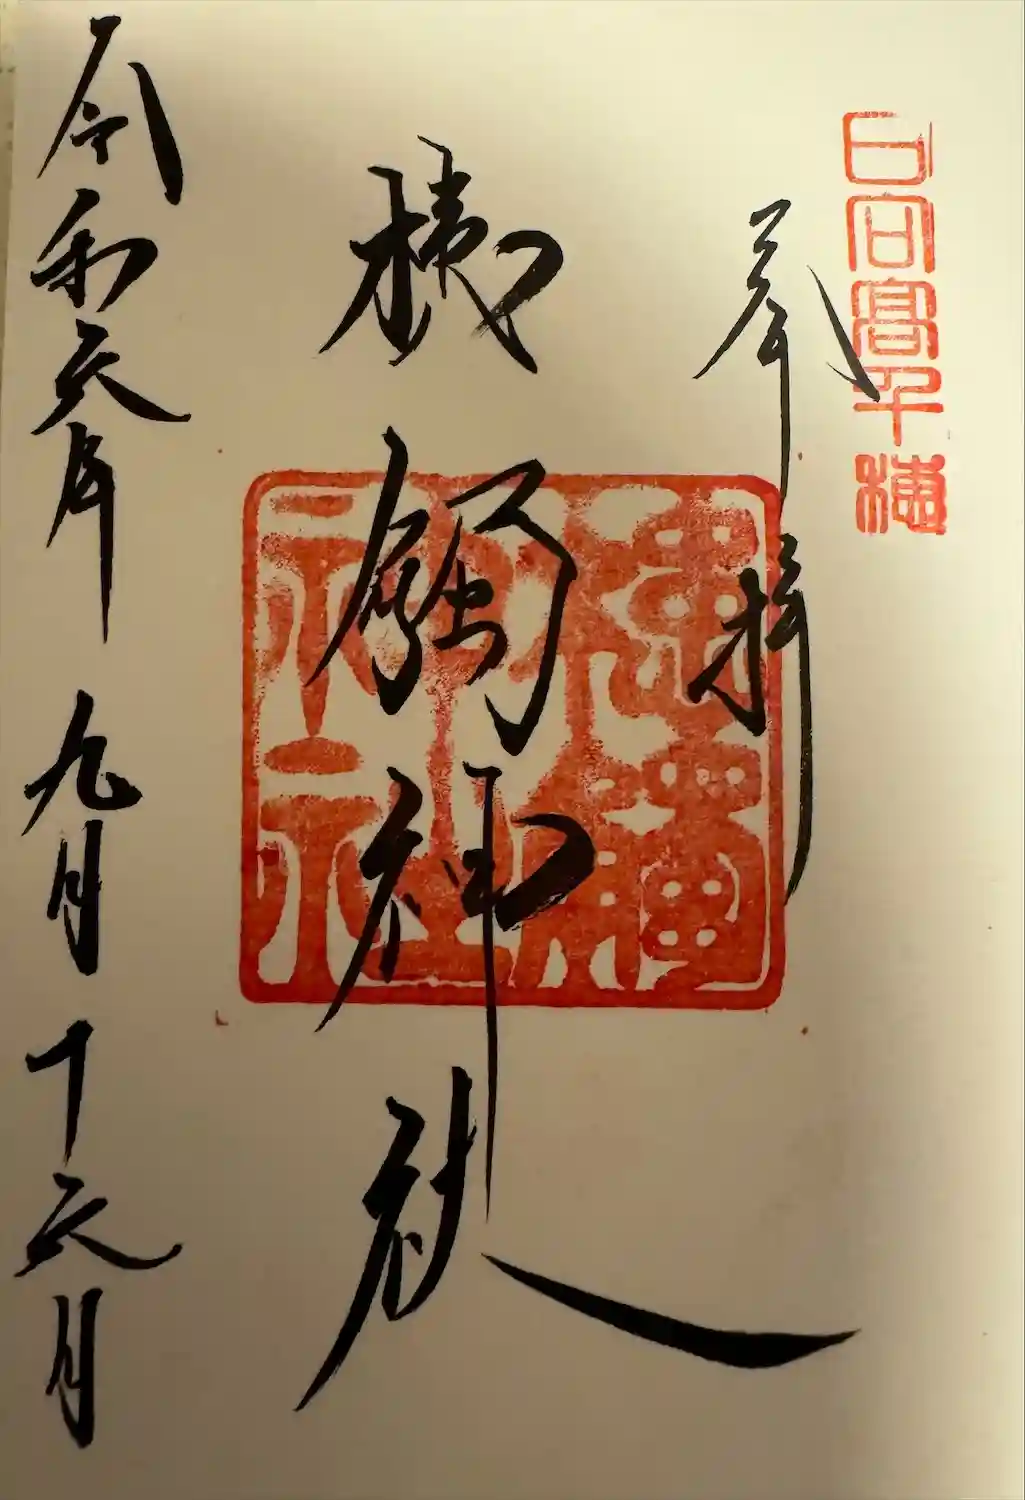 日向髙千穂
奉拝
槵觸神社
槵觸神社
令和六年九月十六日